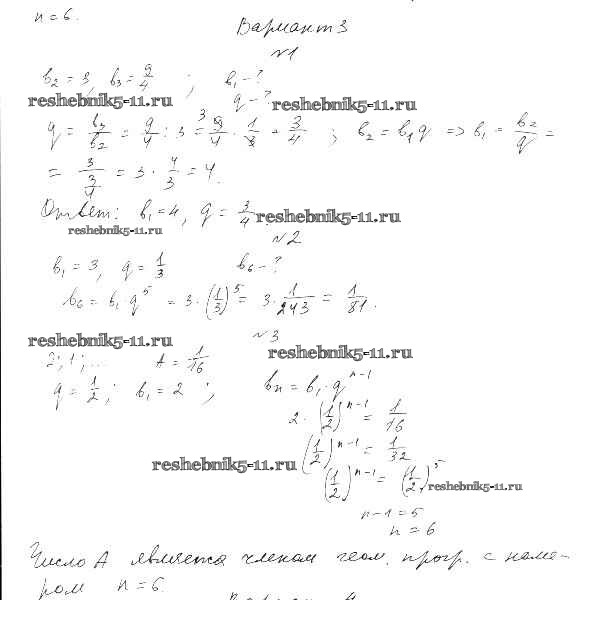 n = 6.
Вариант 3
№1
b₂ = 3, b₃ = 9/4 ; b₁ - ?
reshebnik5-11.ru q - ? reshebnik5-11.ru
q = b₃/b₂ = 9/4 : 3 = 9/4 · 1/3 = 3/4 ; b₂ = b₁q => b₁ = b₂/q =
= 3/(3/4) = 3 · 4/3 = 4.
Ответ: b₁ = 4, q = 3/4. reshebnik5-11.ru
reshebnik5-11.ru
№2
b₁ = 3, q = 1/3 b₆ - ?
b₆ = b₁ q⁵ = 3 · (1/3)⁵ = 3 · 1/243 = 1/81.
reshebnik5-11.ru №3
reshebnik5-11.ru
2; 1; ... A = 1/16
q = 1/2 ; b₁ = 2 ; bₙ = b₁ · qⁿ⁻¹
2 · (1/2)ⁿ⁻¹ = 1/16
(1/2)ⁿ⁻¹ = 1/32
reshebnik5-11.ru
(1/2)ⁿ⁻¹ = (1/2)⁵
reshebnik5-11.ru
n - 1 = 5
n = 6
Число A является членом геом. прогр. с номе-
ром n = 6.